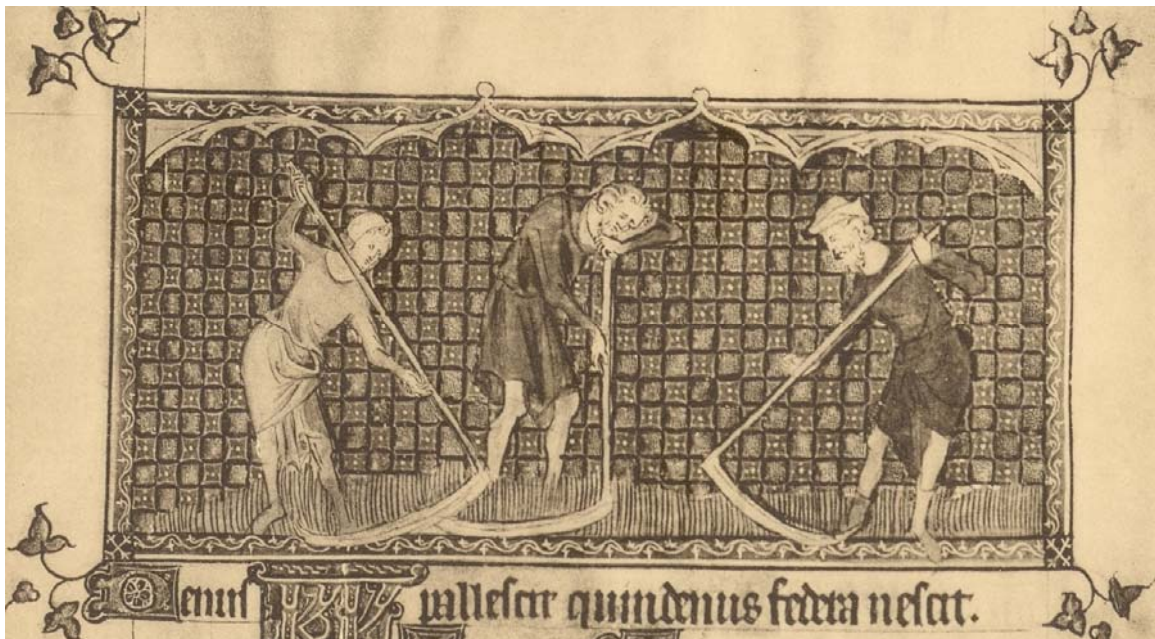 Denus pallescit quindenus federa nescit.